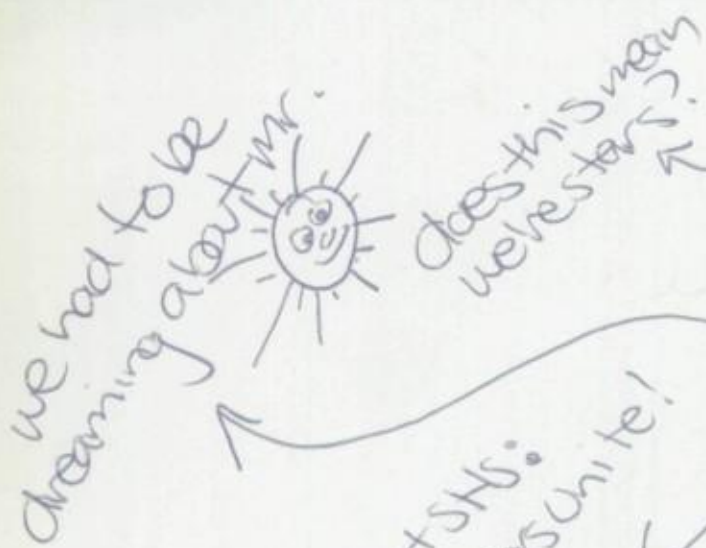 we had to be
dreaming about Mr.
does this mean
we're stars?
SHS:
unite!